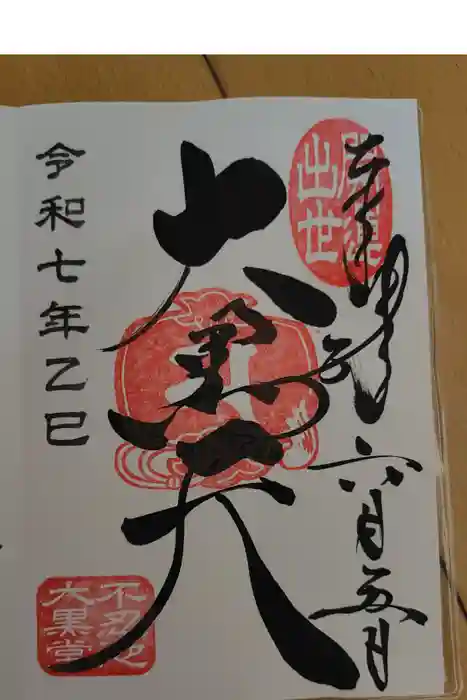 開運
出世
奉拝
六月五日
大黒天
令和七年乙巳
不忍池
大黒堂